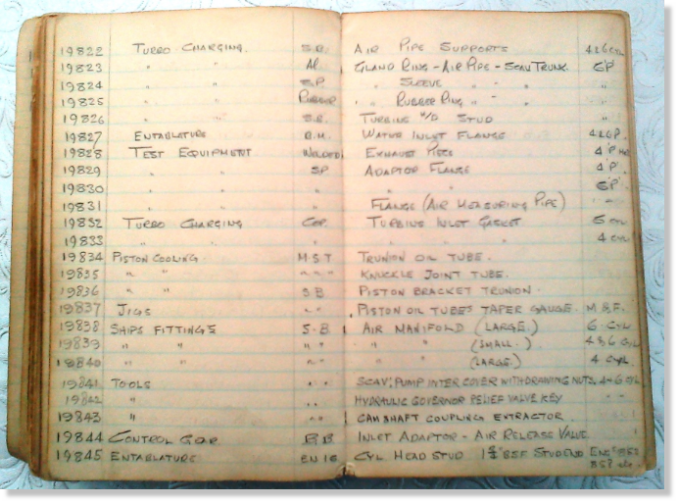 19822 TURBO CHARGING. S.B. AIR PIPE SUPPORTS 4 & 6 CYL
19823 " " AL. GLAND RING - AIR PIPE - SCAV TRUNK. 6P
19824 " " S.P. " SLEEVE " " "
19825 " " RUBBER " " RUBBER RING " - " "
19826 " " S.B. TURBINE STUD "
19827 ENTABLATURE B.M. WATER INLET FLANGE 4 & 6 P.
19828 TEST EQUIPMENT WELDED EXHAUST PIPES 4 P
19829 " " S.P. ADAPTOR FLANGE 4 P
19830 " " " " " 6P
19831 " " " FLANGE (AIR MEASURING PIPE) " "
19832 TURBO CHARGING TURBINE INLET GASKET 6 CYL
19833 " " " " " " 4 CYL
19834 PISTON COOLING M.S.T TRUNION OIL TUBE.
19835 " " " " " KNUCKLE JOINT TUBE.
19836 " " S.B PISTON BRACKET TRUNION.
19837 JIGS " " PISTON OIL TUBES TAPER GAUGE. M & F.
19838 SHIPS FITTINGS S.B AIR MANIFOLD (LARGE.) 6 CYL.
19839 " " " " " " (SMALL.) 4 & 6 CYL
19840 " " " " (LARGE) 4 CYL.
19841 TOOLS " " SCAV: PUMP INTER COVER WITHDRAWING NUTS. 4-6 CYL
19842 " " " HYDRAULIC GOVERNOR RELIEF VALVE KEY " "
19843 " " " CAMSHAFT COUPLING EXTRACTOR
19844 CONTROL GEAR BB INLET ADAPTOR - AIR RELEASE VALVE
19845 ENTABLATURE EN 16 CYL HEAD STUD BSF STUDEND